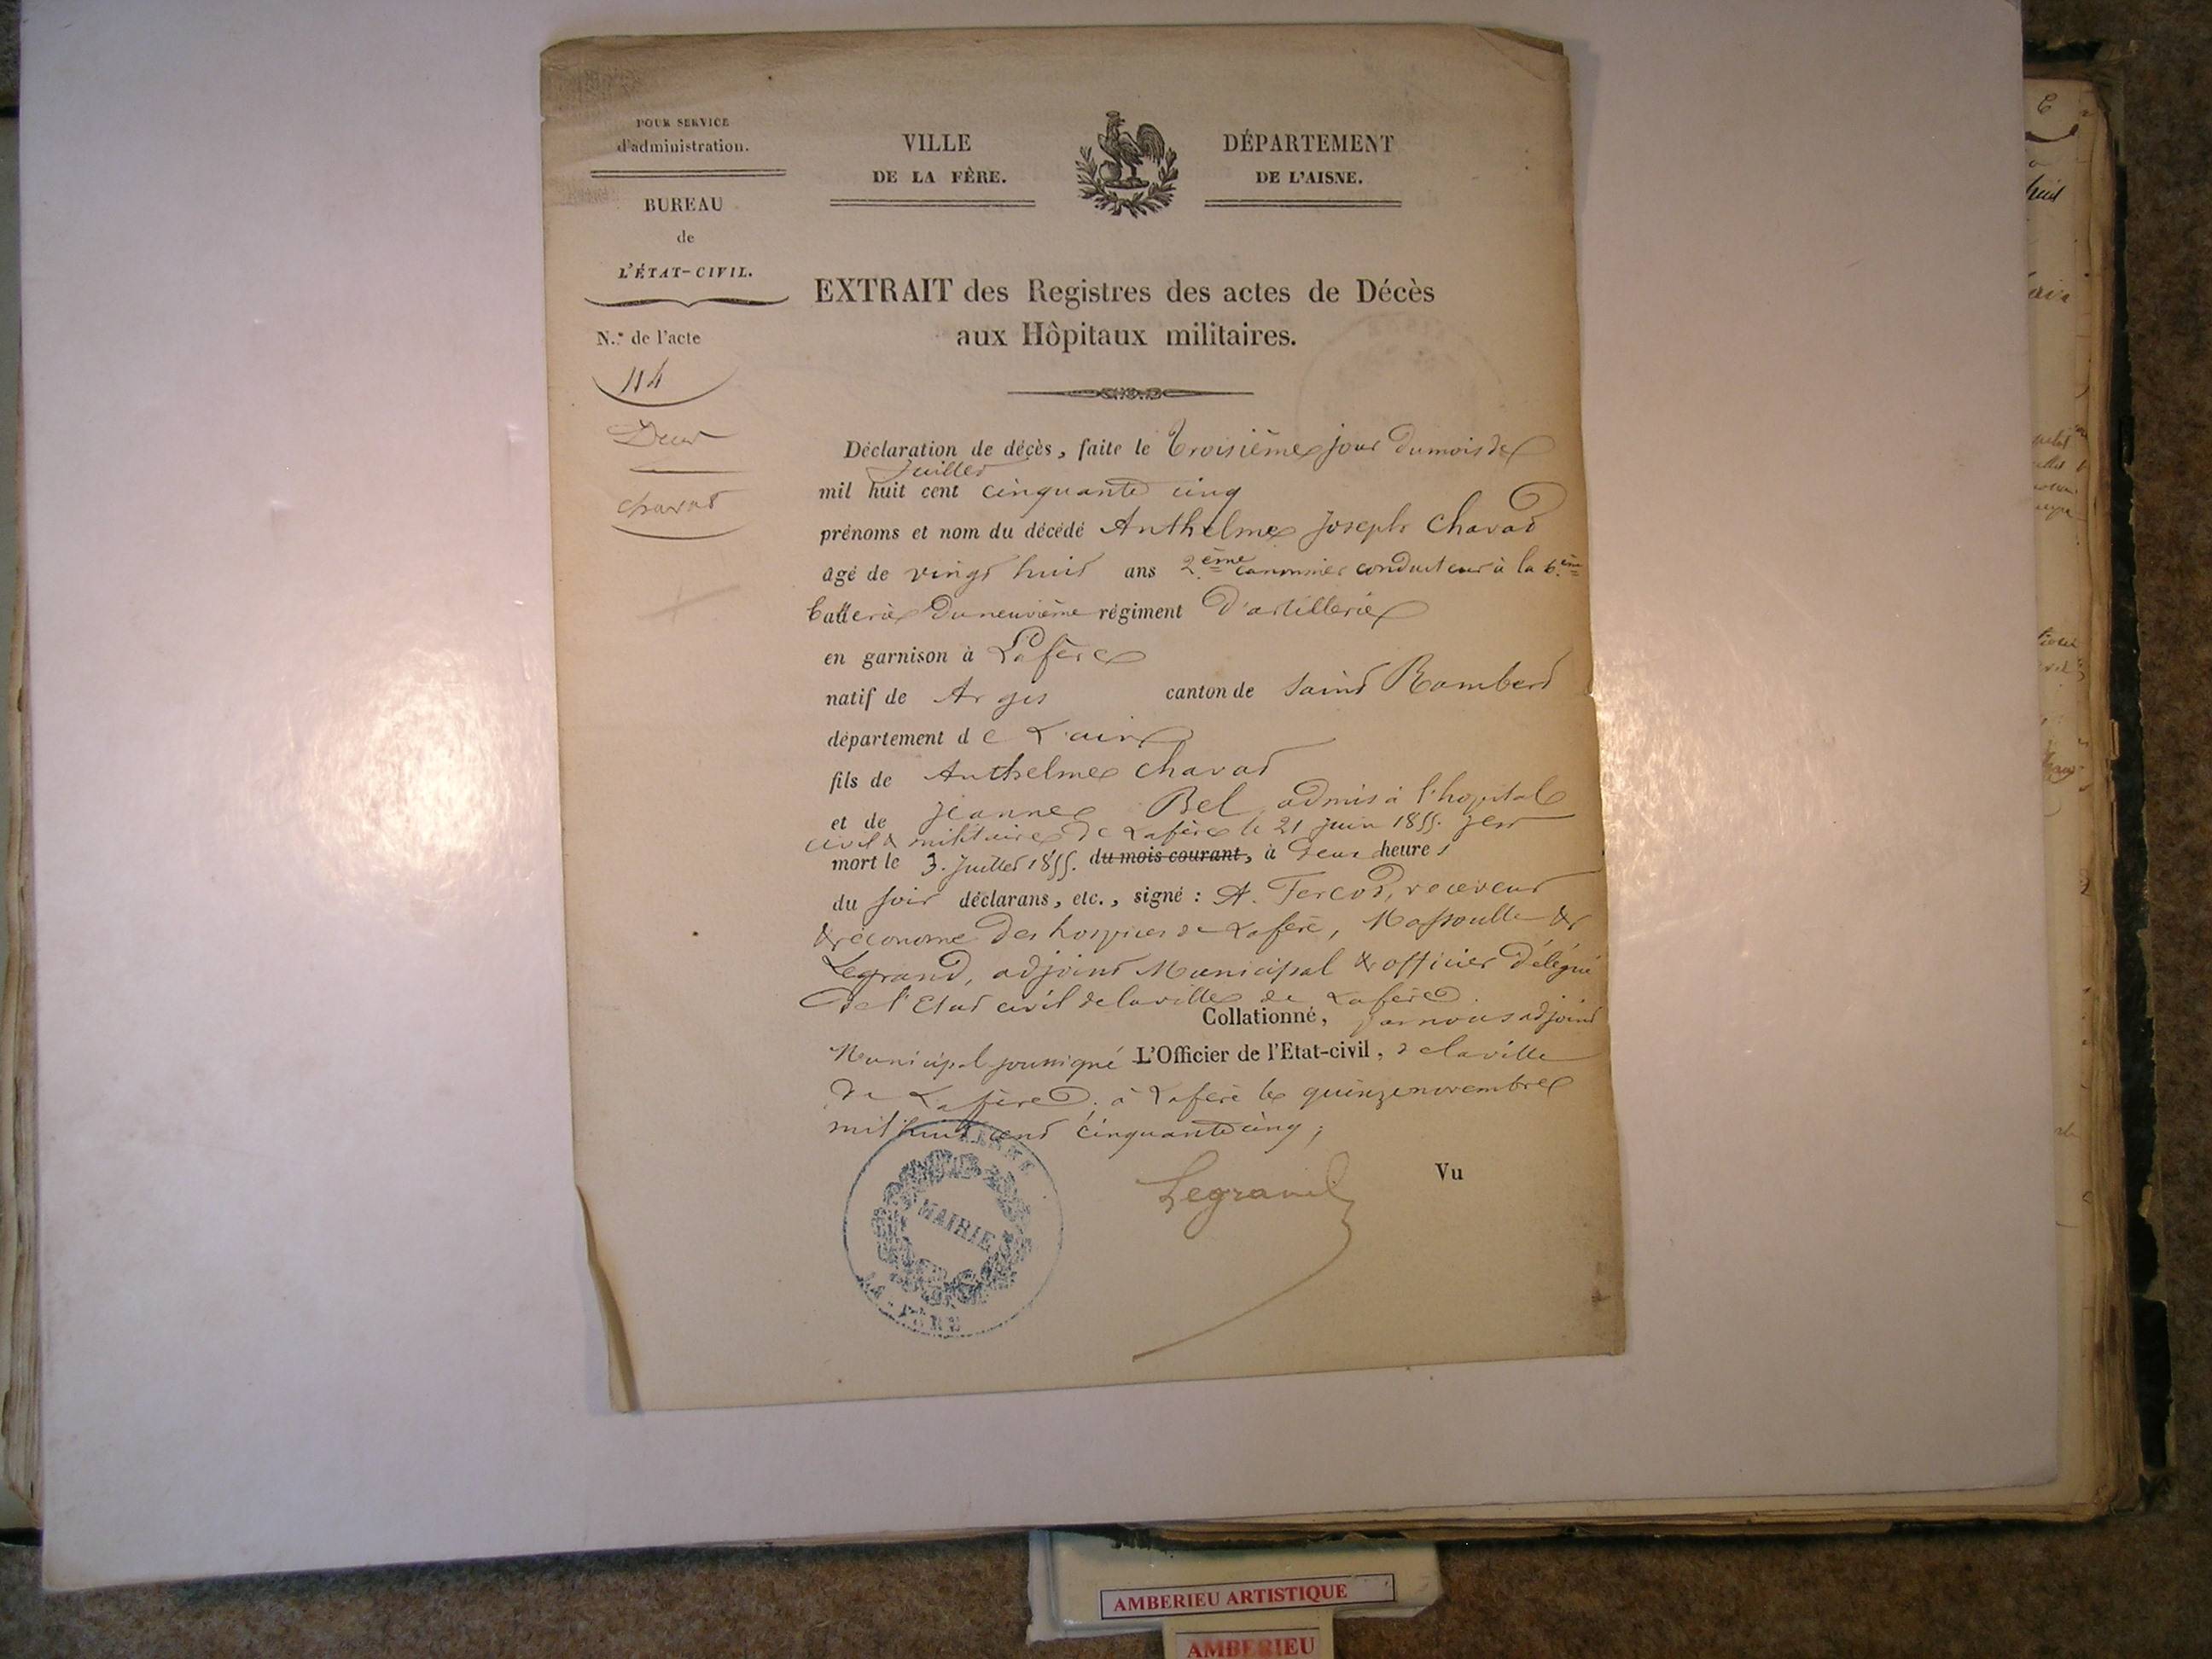 POUR SERVICE
d'administration.
BUREAU
de
L'ÉTAT-CIVIL.
N.º de l'acte
114
Décès
Chavat
VILLE
DE LA FÈRE.
DÉPARTEMENT
DE L'AISNE.
EXTRAIT des Registres des actes de Décès
aux Hôpitaux militaires.
Déclaration de décès, faite le Troisième jour du mois de
Juillet
mil huit cent cinquante cinq
prénoms et nom du décédé Anthelme Joseph Chavat
âgé de vingt huit ans 2.ème canonnier conducteur à la 6.ème
batterie du neuvième régiment d'artillerie
en garnison à Lafère
natif de Argis canton de Saint Rambert
département de L'ain
fils de Anthelme Chavat
et de Jeanne Bel, admis à l'hopital
civil & militaire de Lafère le 21 juin 1855. y est
mort le 3. Juillet 1855. du mois courant, à deux heures
du soir déclarans, etc., signé : A. Tercot, receveur
& économe des hospices de Lafère, Massoulle &
Legrand, adjoint Municipal & officier délégué
de l'Etat civil de la ville de Lafère.
Collationné, par nous adjoint
Municipal soussigné L'Officier de l'Etat-civil, de la ville
de Lafère. à Lafère le quinze novembre
mil huit cent cinquante cinq ;
Legrand
Vu
MAIRIE
LA FÈRE
AMBERIEU ARTISTIQUE
AMBERIEU